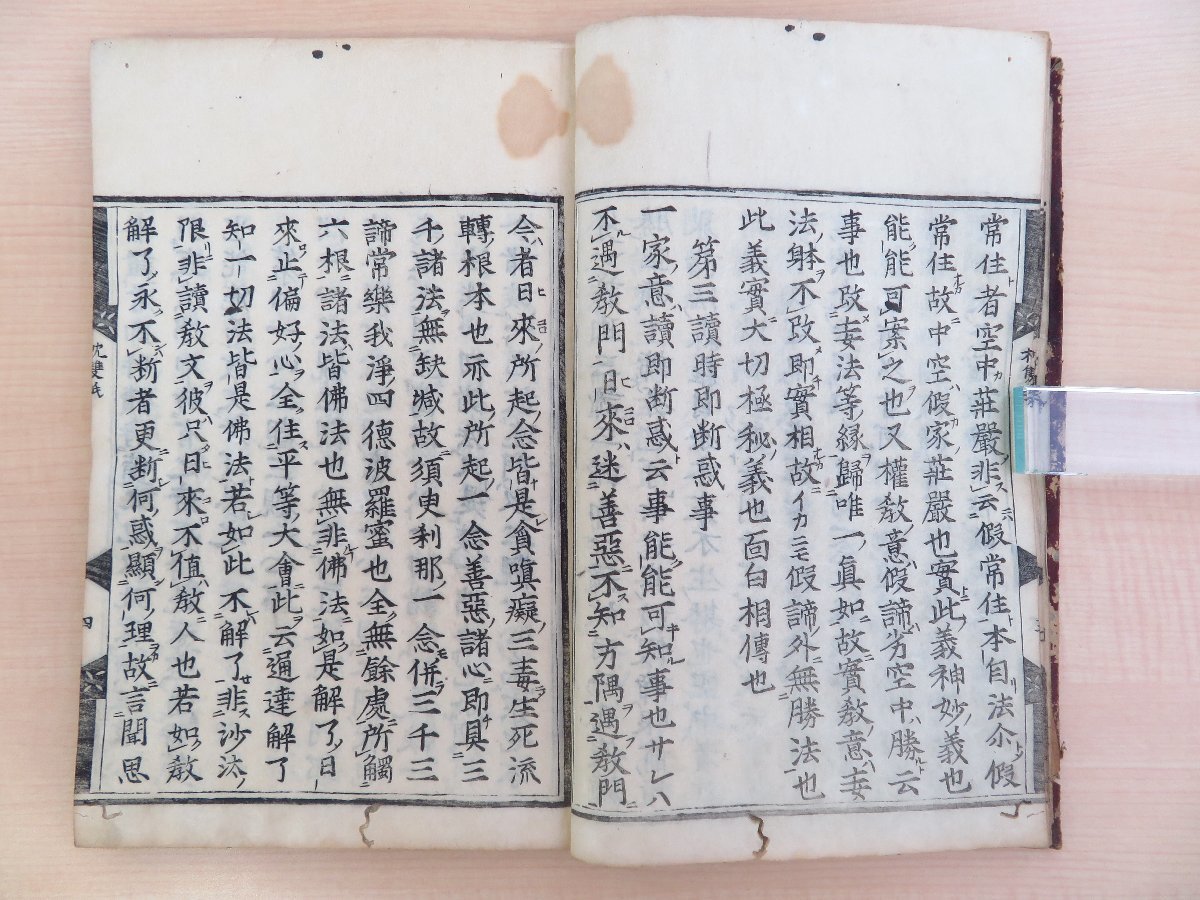 常住者空中莊嚴非云假常住本自法尒假
常住故中空假家莊嚴也實此義神妙義也
能能可案之也又權敎意假諦劣空中勝云
事也改妄法等縁歸唯一眞如故實敎意妄
法躰不改即實相故イカニモ假諦外無勝法也
此義實大切極秘義也面白相傳也
第三讀時即断惑事
一家意讀即断惑云事能能可知事也サレハ
不遇敎門日來迷善惡不知方隅遇敎門
今者日來所起念皆是貪嗔癡三毒生死流
轉根本也示此所起一念善惡諸心即具三
千諸法無缺减故須臾刹那一念併三千三
諦常樂我淨四德波羅蜜也全無餘處所觸
六根諸法皆佛法也無非佛法如是解了日
來止偏好心全住平等大會此云通達解了
知一切法皆是佛法若如此不解了非沙汰
限非讀敎文彼只日來不值敎人也若如敎
解了永不断者更断何惑顯何理故言聞思
四